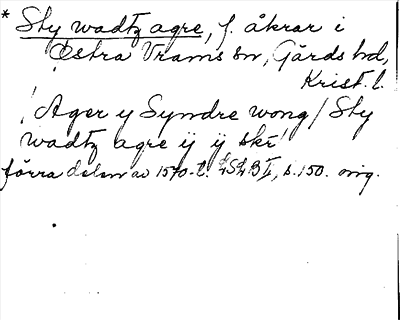 * Sty wadtz agre, f. åkrar i
Östra Vrams sn, Gärds hd,
Krist. l.
"Ager y Syndre wong / Sty
wadtz agre ij ÿ skr"
förra delen av 1570-t. LSLB I, s. 150. orig.